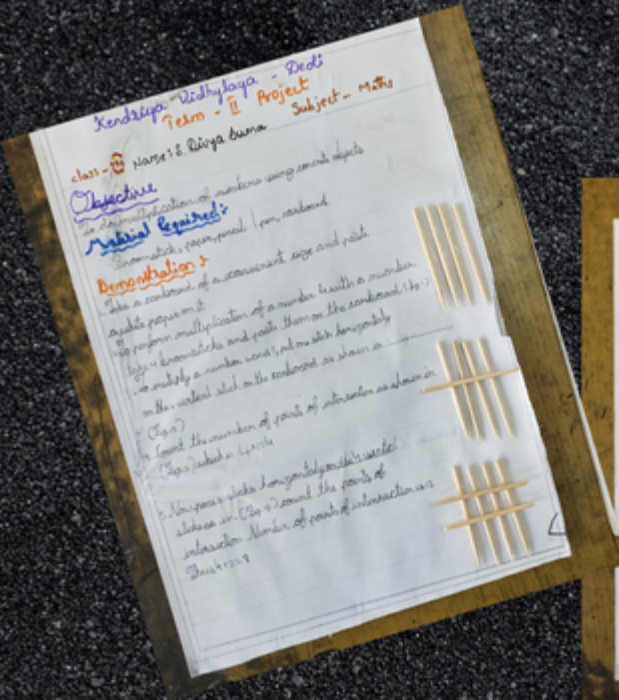 Kendriya Vidhylaya - Dedi
Term - II Project
Subject - Maths
class - Name: S. Divya Suma
Objective
To do multiplication of numbers using concrete objects
Material Required:
Broomstick, paper, pencil / pen, cardboard
Demonstration:
Take a cardboard of a convenient size and paste
a white paper on it
To perform multiplication of a number with a number
broomsticks and paste them on the cardboard
To multiply a number put one stick horizontally
on the vertical stick on the cardboard as shown in
Count the number of points of intersection as shown in
which is 4x1=4
Now place sticks horizontally on the
sticks as in count the points of
intersection Number of points of intersection is
Thus 4x2=8